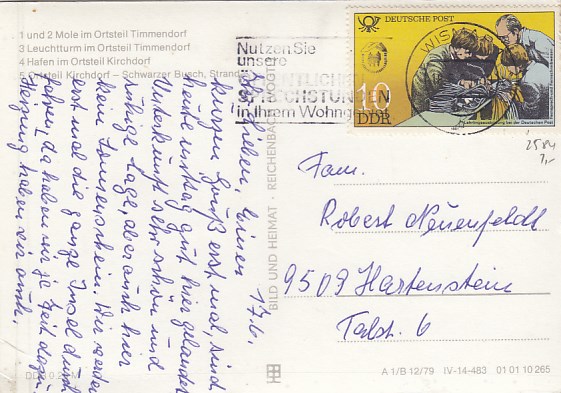 1 und 2 Mole im Ortsteil Timmendorf
3 Leuchtturm im Ortsteil Timmendorf
4 Hafen im Ortsteil Kirchdorf
5 Ortsteil Kirchdorf – Schwarzer Busch, Strand
17.6.
Ihr Lieben, einen
kurzen Gruß erst mal, sind
heute mittag gut hier gelandet
Unterkunft sehr schön und
ruhige Lage, aber auch hier
kein Sonnenschein. Wir werden
erst mal die ganze Insel durch
fahren, da haben wir ja Zeit dazu.
Heizung haben wir auch.
BILD UND HEIMAT · REICHENBACH
Nutzen Sie
unsere
ÖFFENTLICHEN
SPRECHSTUNDEN
in Ihrem Wohng
WIS
DEUTSCHE POST
10
DDR
2584
7,-
Fam.
Robert Neuenfeldt
9509 Hartenstein
Talstr. 6
A 1/B 12/79 IV-14-483 01 01 10 265